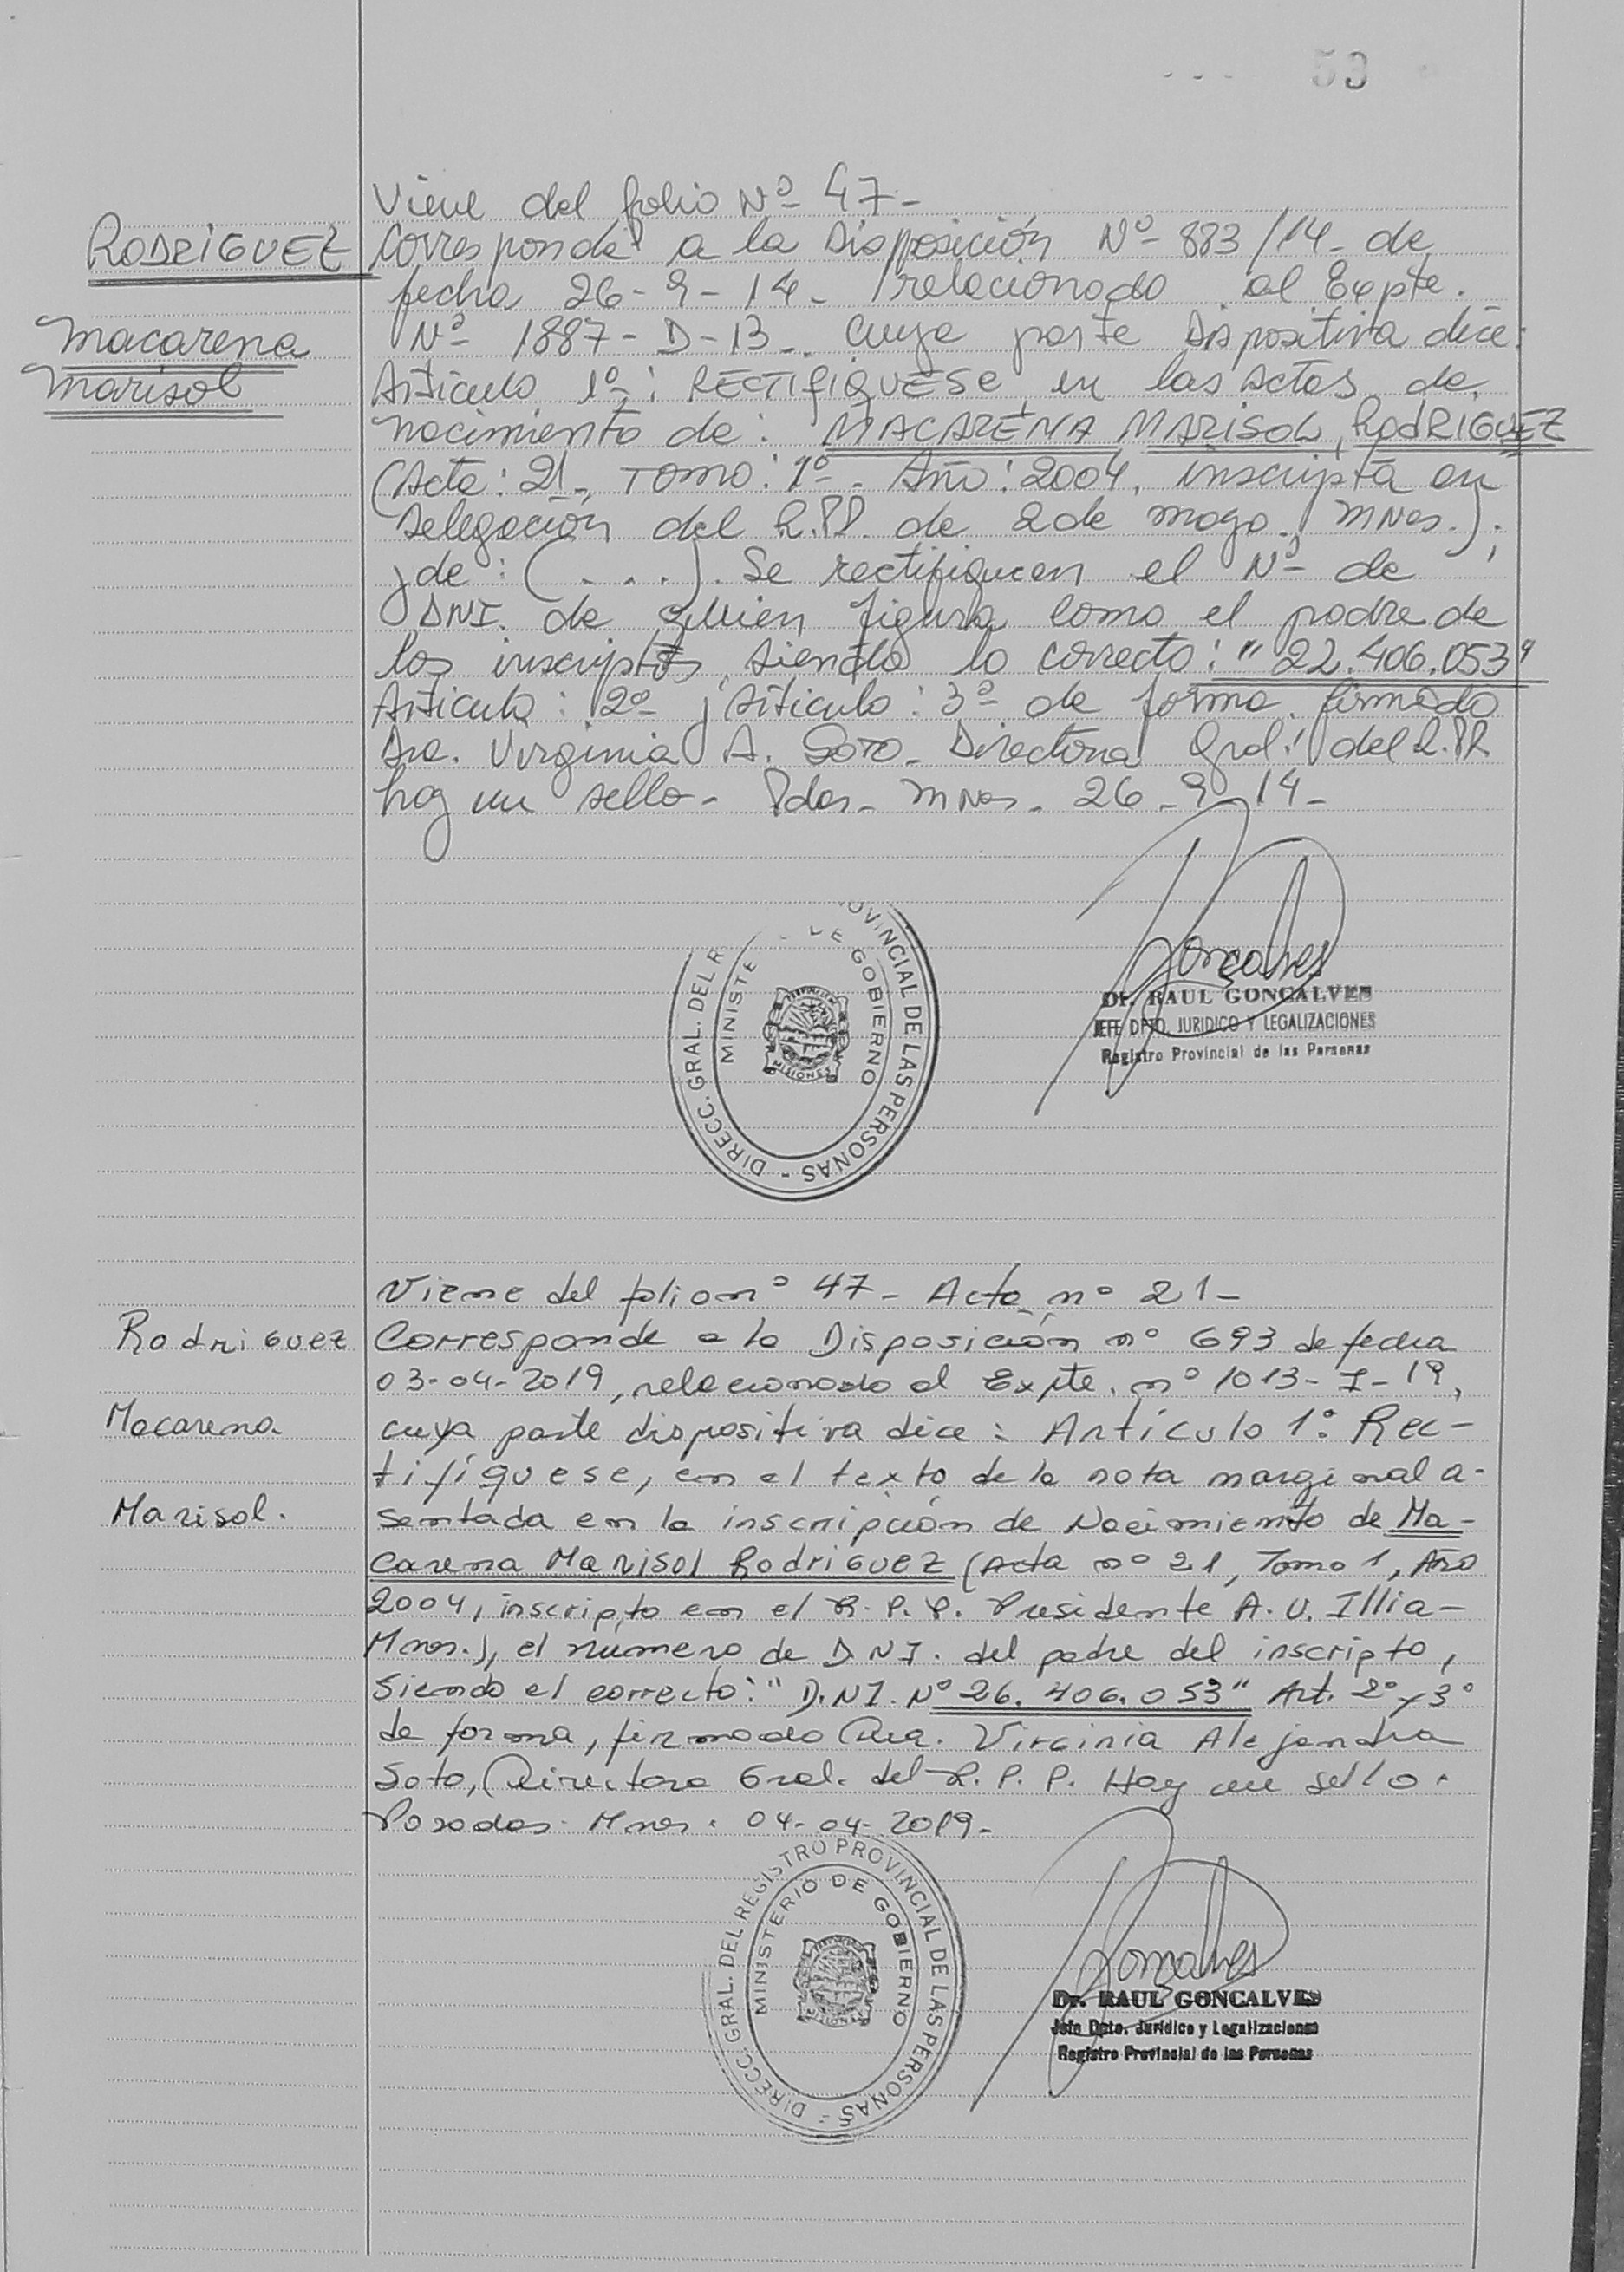 53
Viene del folio Nº 47-
RODRIGUEZ Corresponde a la Disposición Nº 883/14- de
fecha 26-9-14- relacionado al Expte.
Macarena Nº 1887-D-13-. cuya parte Dispositiva dice:
Marisol Artículo 1º: RECTIFIQUESE en las Actas de
nacimiento de: MACARENA MARISOL RODRIGUEZ
(Acta: 21-, TOMO: 1º- Año: 2004, inscripta en
Delegación del R.PP. de 2 de mayo. Mnes.).
y de: (....). Se rectifiquen el Nº de
DNI. de quien figura como el padre de
los inscriptos, siendo lo correcto: "22.406.053"
Artículo: 2º y Artículo: 3º de forma. firmado
Dra. Virginia A. Soto- Directora Gral. del R.PP.
hay un sello- Pdas- Mnes- 26-9-14-
DIRECC. GRAL. DEL R OVINCIAL DE LAS PERSONAS -
MINISTE DE GOBIERNO
MISIONES
Goncalves
Dr. RAUL GONCALVES
JEFE DPTO. JURIDICO Y LEGALIZACIONES
Registro Provincial de las Personas
Viene del folio nº 47- Acta nº 21-
Rodriguez Corresponde a la Disposición nº 693 de fecha
03-04-2019, relacionado al Expte. nº 1013-I-19,
Macarena cuya parte dispositiva dice: Artículo 1º: Rec-
tifíquese, en el texto de la nota marginal a-
Marisol. sentada en la inscripción de Nacimiento de Ma-
carena Marisol Rodriguez (Acta nº 21, Tomo 1, Año
2004, inscripto en el R.P.P. Presidente A.U. Illia-
Mnes.), el número de D.N.I. del padre del inscripto,
siendo el correcto: "D.N.I. Nº 26.406.053" Art. 2º y 3º
de forma, firmado Dra. Virginia Alejandra
Soto, Directora Gral. del R.P.P. Hay un sello.
Posadas. Mnes. 04-04-2019-
DIRECC. GRAL. DEL REGISTRO PROVINCIAL DE LAS PERSONAS -
MINISTERIO DE GOBIERNO
MISIONES
Goncalves
Dr. RAUL GONCALVES
Jefe Dpto. Jurídico y Legalizaciones
Registro Provincial de las Personas